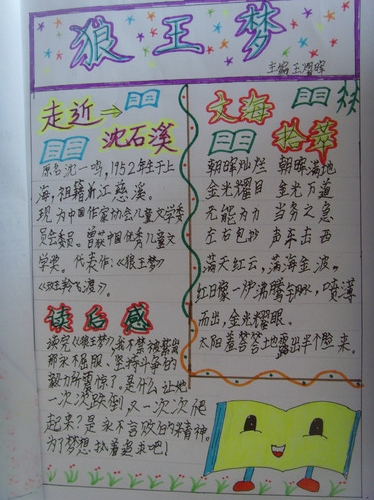 狼王梦
主编王熠晖
走近→
沈石溪
原名沈一鸣，1952年生于上
海，祖籍浙江慈溪。
现为中国作家协会儿童文学委
员会委员。曾获中国优秀儿童文
学奖。代表作:《狼王梦》
《斑羚飞渡》。
读后感
读完《狼王梦》，我不禁被紫岚
那永不屈服、坚持斗争的
毅力所震惊了。是什么让她
一次次跌倒又一次次爬
起来？是永不言败的精神。
为了梦想，执着追求吧！
文海
拾萃
朝晖灿烂 朝晖满地
金光耀目 金光万道
无能为力 当务之急
左右包抄 声东击西
满天红云，满海金波，
红日像一炉沸腾的钢水，喷薄
而出，金光耀眼。
太阳羞答答地露出半个脸来。